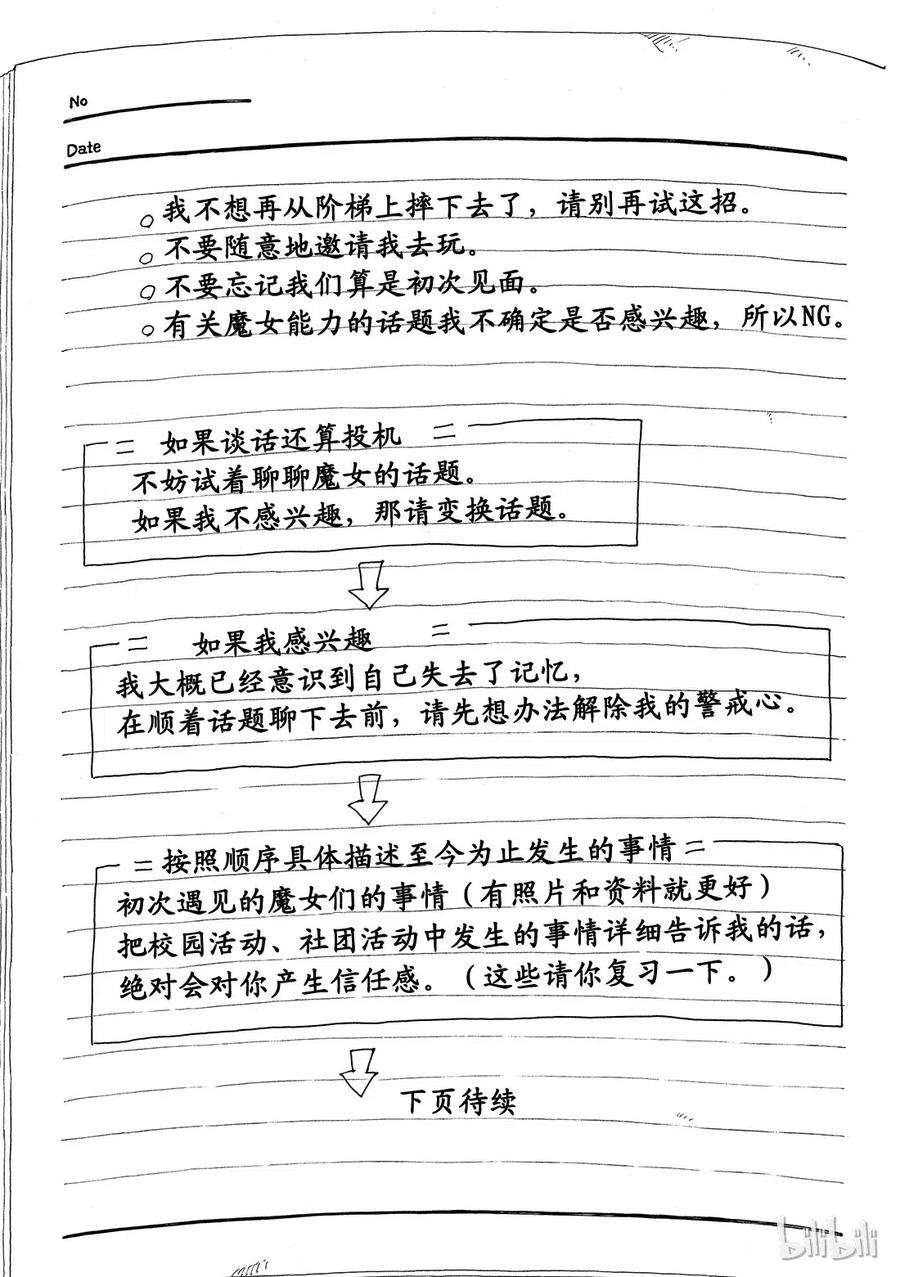 No
Date
。我不想再从阶梯上摔下去了，请别再试这招。
。不要随意地邀请我去玩。
。不要忘记我们算是初次见面。
。有关魔女能力的话题我不确定是否感兴趣，所以NG。
= 如果谈话还算投机 =
不妨试着聊聊魔女的话题。
如果我不感兴趣，那请变换话题。
= 如果我感兴趣 =
我大概已经意识到自己失去了记忆，
在顺着话题聊下去前，请先想办法解除我的警戒心。
=按照顺序具体描述至今为止发生的事情=
初次遇见的魔女们的事情（有照片和资料就更好）
把校园活动、社团活动中发生的事情详细告诉我的话，
绝对会对你产生信任感。（这些请你复习一下。）
下页待续
bilibili